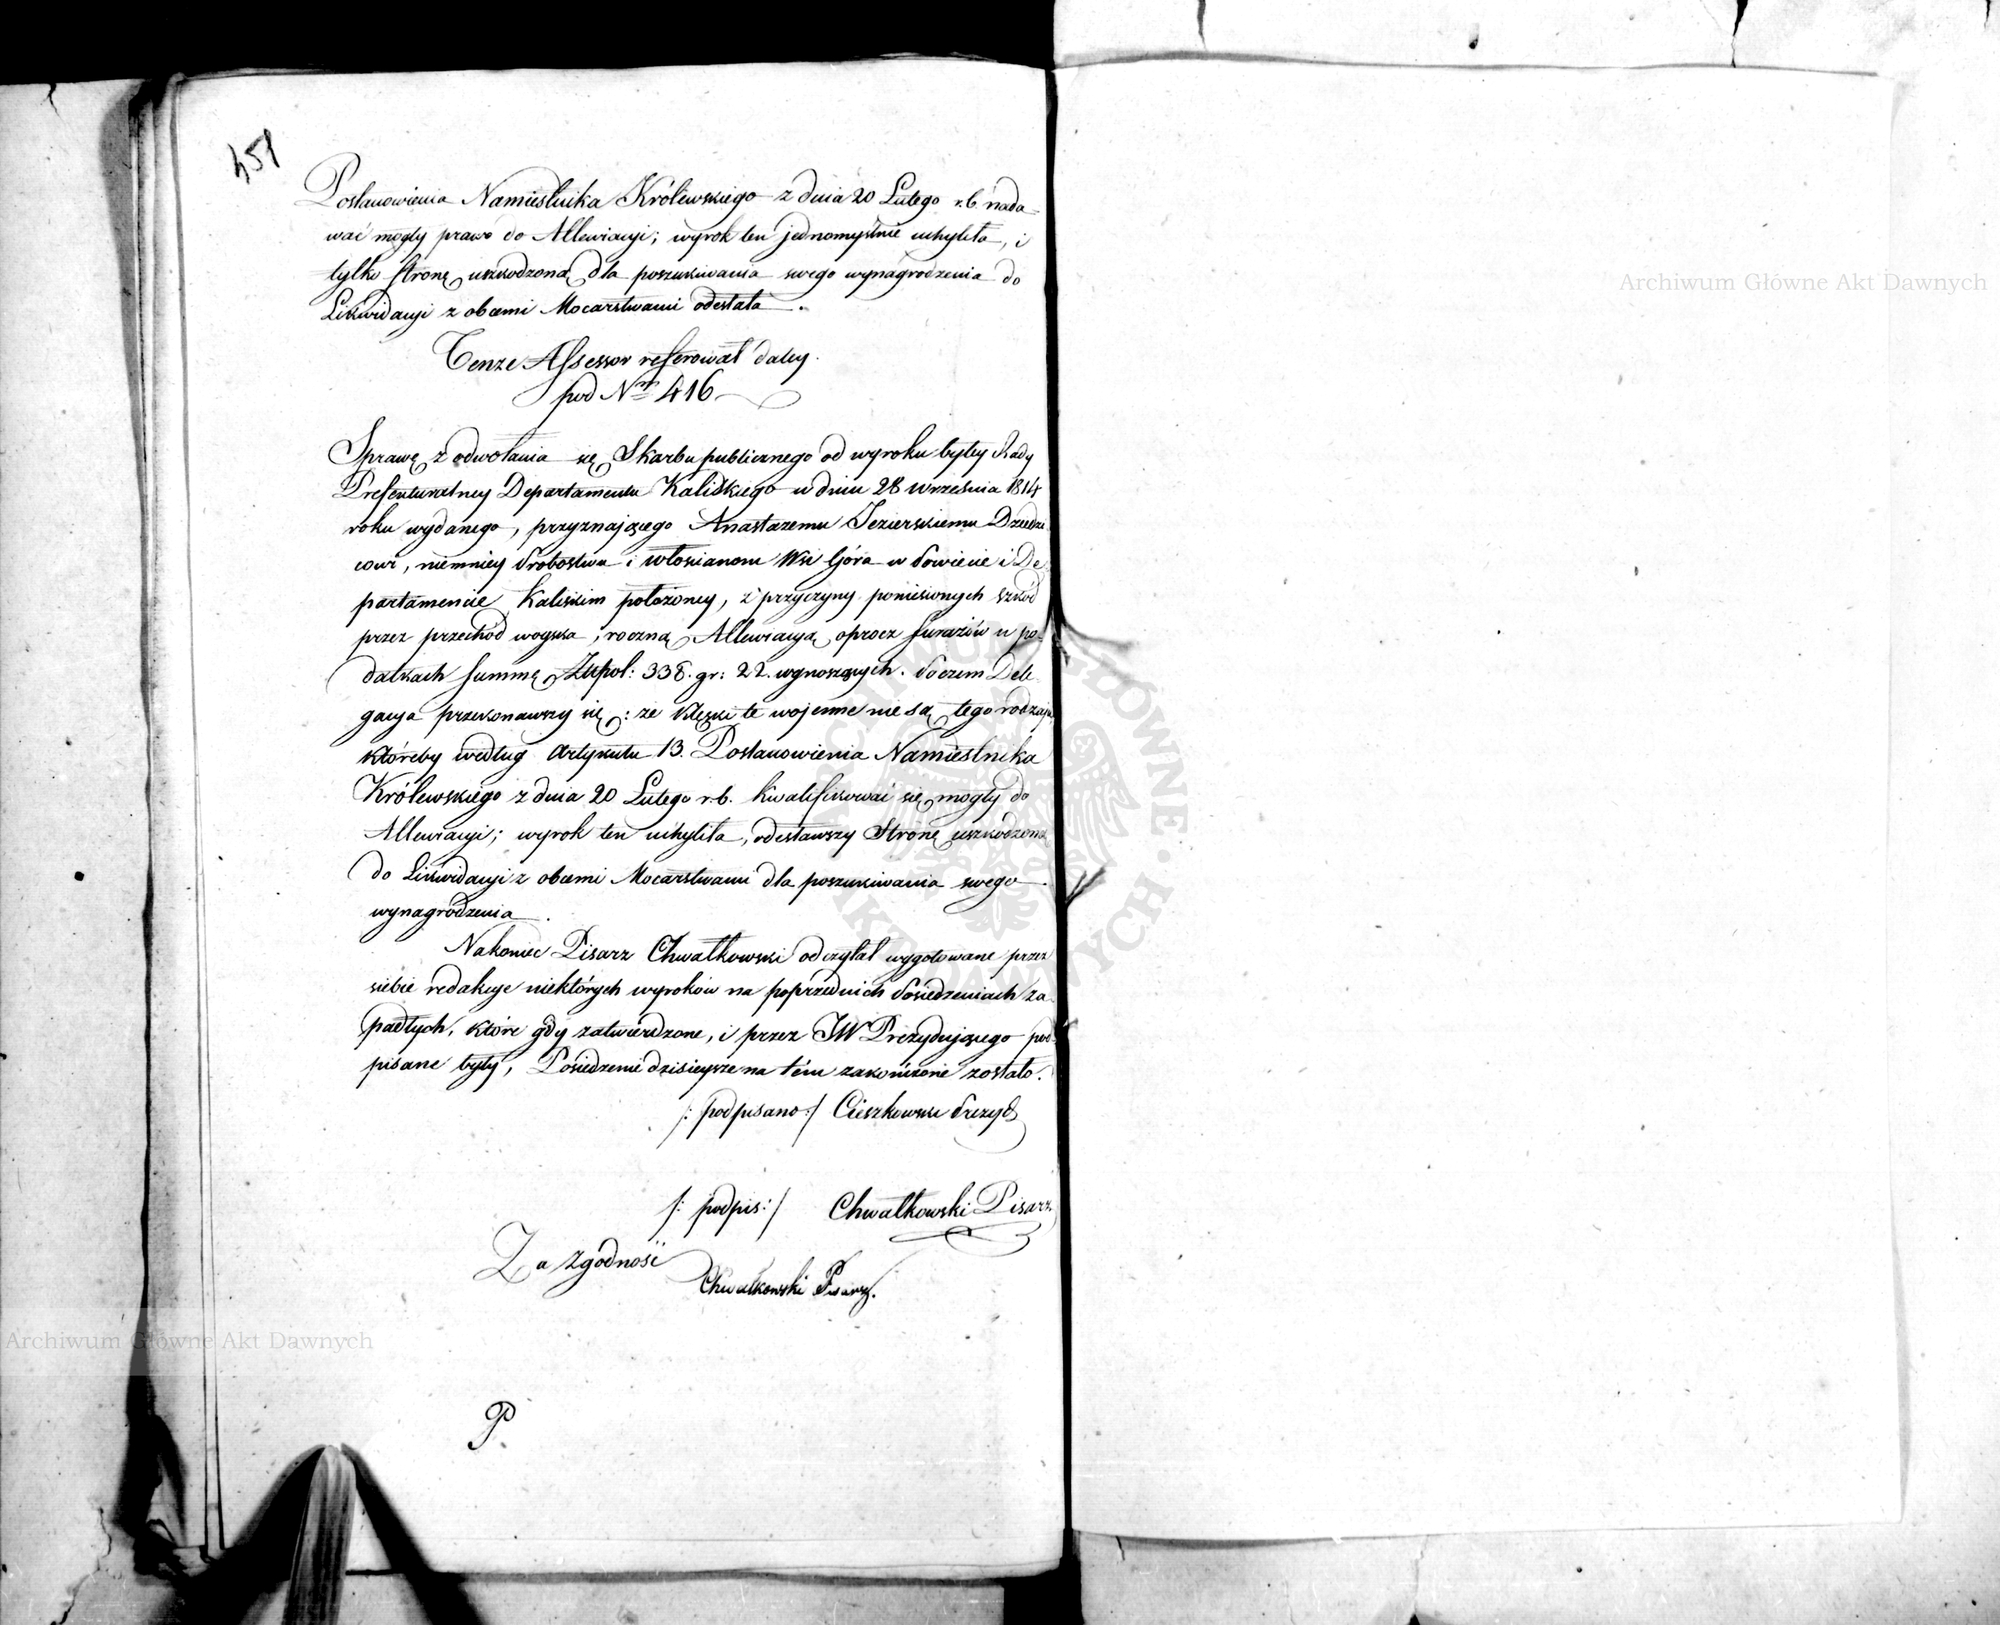 451
Postanowienia Namiestnika Królewskiego z dnia 20 Lutego r.b. nada-
wać mogły prawo do Allewiacyi; wyrok ten jednomyślnie uchyliła, i
tylko Stronę uszkodzoną dla poszukiwania swego wynagrodzenia do
Likwidacyi z obcemi Mocarstwami odesłała.
Tenże Assessor referował daley.
pod Nrm 416
Sprawę z odwołania się Skarbu publicznego od wyroku byłey Rady
Prefekturalney Departamentu Kaliskiego w dniu 28 Września 1814
roku wydanego, przyznaiącego Anastazemu Jezierskiemu Dziedzi-
cowi, niemniey Probostwu i włościanom Wsi Góra w Powiecie i De-
partamencie Kaliskim położoney, z przyczyny poniesionych szkód
przez przechód woyska, roczną Allewiacyą oprocz furażów w po-
datkach summę Złłpol: 338. gr: 22. wynoszących. Poczem Dele-
gacya przekonawszy się: że klęski te wojenne nie są tego rodzaju,
któreby według Artykułu 13. Postanowienia Namiestnika
Królewskiego z dnia 20 Lutego r.b. kwalifikować się mogły do
Allewiacyi; wyrok ten uchyliła, odesławszy Stronę uszkodzoną
do Likwidacyi z obcemi Mocarstwami dla poszukiwania swego
wynagrodzenia.
Nakoniec Pisarz Chwałkowski odczytał wygotowane przez
siebie redakcye niektórych wyroków na poprzednich Posiedzeniach za-
padłych, które gdy zatwierdzone, i przez JW Prezyduiącego pod-
pisane były, Posiedzenie dzisieysze na tém zakończone zostało.
/: podpisano :/ Cieszkowski Prezyd
/: podpis: / Chwałkowski Pisarz
Za zgodność
Chwałkowski Pisarz.
P.
Archiwum Główne Akt Dawnych
Archiwum Główne Akt Dawnych
ARCHIWUM GŁÓWNE AKT DAWNYCH